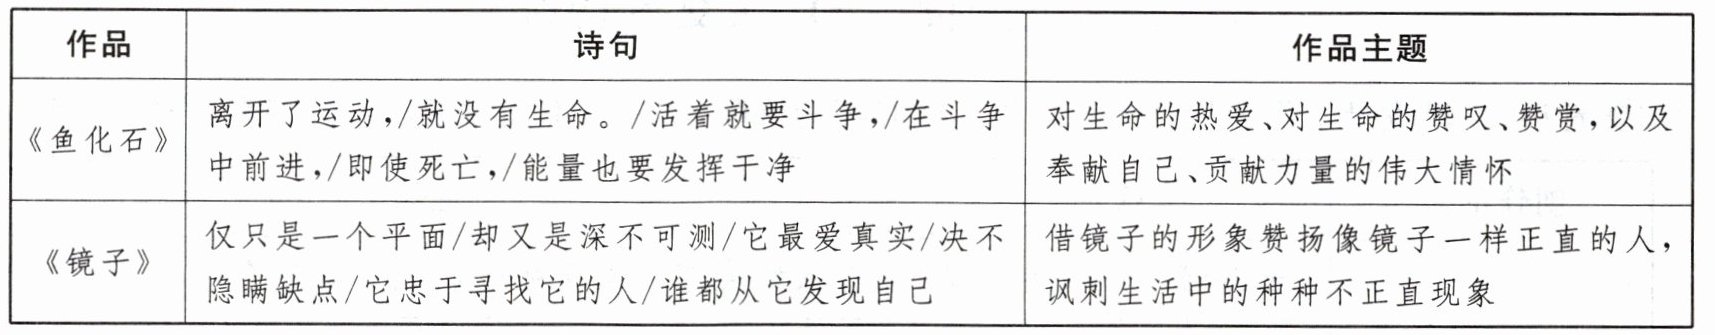 作品
诗句
作品主题
《鱼化石》
离开了运动,/就没有生命。/活着就要斗争,/在斗争
中前进,/即使死亡,/能量也要发挥干净
对生命的热爱、对生命的赞叹、赞赏,以及
奉献自己、贡献力量的伟大情怀
《镜子》
仅只是一个平面/却又是深不可测/它最爱真实/决不
隐瞒缺点/它忠于寻找它的人/谁都从它发现自己
借镜子的形象赞扬像镜子一样正直的人,
讽刺生活中的种种不正直现象